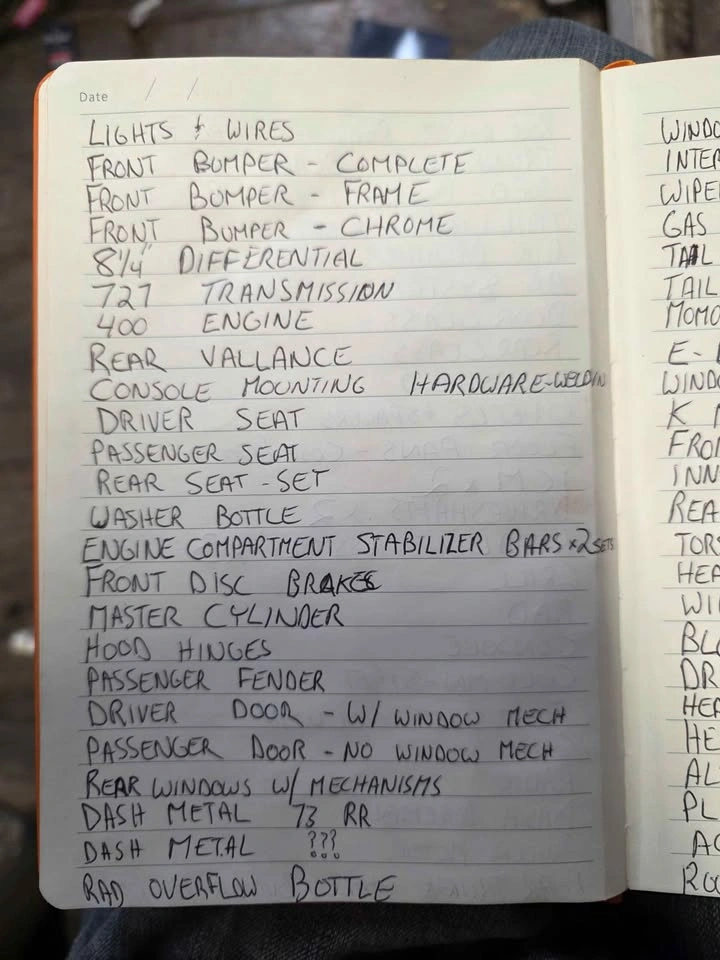 Date / /
LIGHTS & WIRES
FRONT BUMPER - COMPLETE
FRONT BUMPER - FRAME
FRONT BUMPER - CHROME
8 1/4" DIFFERENTIAL
727 TRANSMISSION
400 ENGINE
REAR VALLANCE
CONSOLE MOUNTING HARDWARE-WELDIN
DRIVER SEAT
PASSENGER SEAT
REAR SEAT - SET
WASHER BOTTLE
ENGINE COMPARTMENT STABILIZER BARS x2 SETS
FRONT DISC BRAKES
MASTER CYLINDER
HOOD HINGES
PASSENGER FENDER
DRIVER DOOR - W/ WINDOW MECH
PASSENGER DOOR - NO WINDOW MECH
REAR WINDOWS W/ MECHANISMS
DASH METAL 73 RR
DASH METAL ???
RAD OVERFLOW BOTTLE
WINDO
INTER
WIPE
GAS
TAIL
TAIL
MOMO
E-
WINDO
K
FRO
INN
REA
TOR
HEA
WI
BLO
DR
HEA
HE
AL
PL
AC
ROC